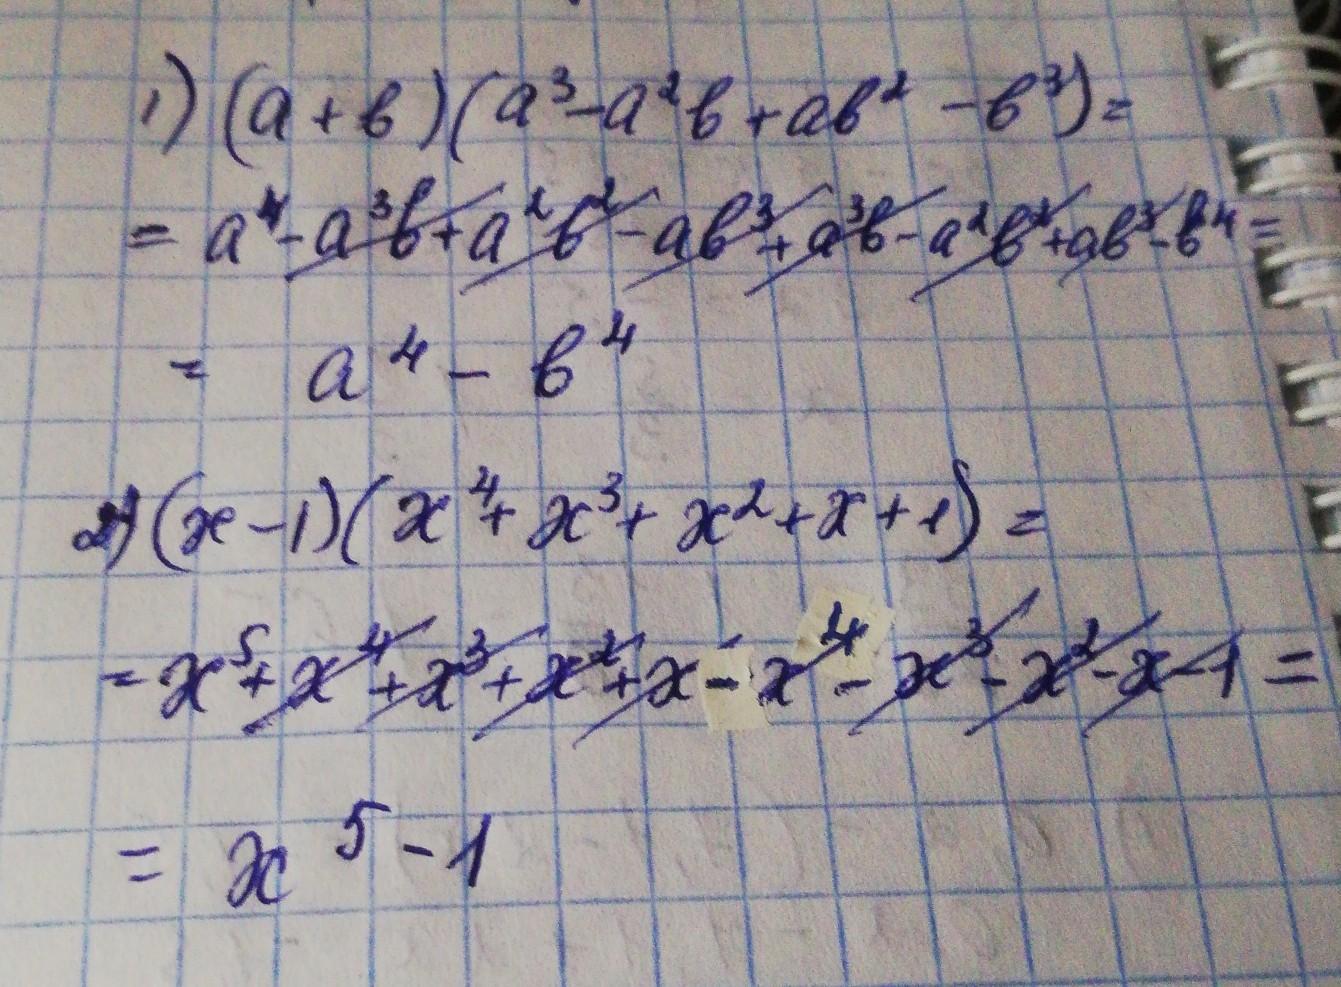 1) (a + b)(a³ - a²b + ab² - b³) =
= a⁴ - a³b + a²b² - ab³ + a³b - a²b² + ab³ - b⁴ =
= a⁴ - b⁴
2) (x - 1)(x⁴ + x³ + x² + x + 1) =
= x⁵ + x⁴ + x³ + x² + x - x⁴ - x³ - x² - x - 1 =
= x⁵ - 1